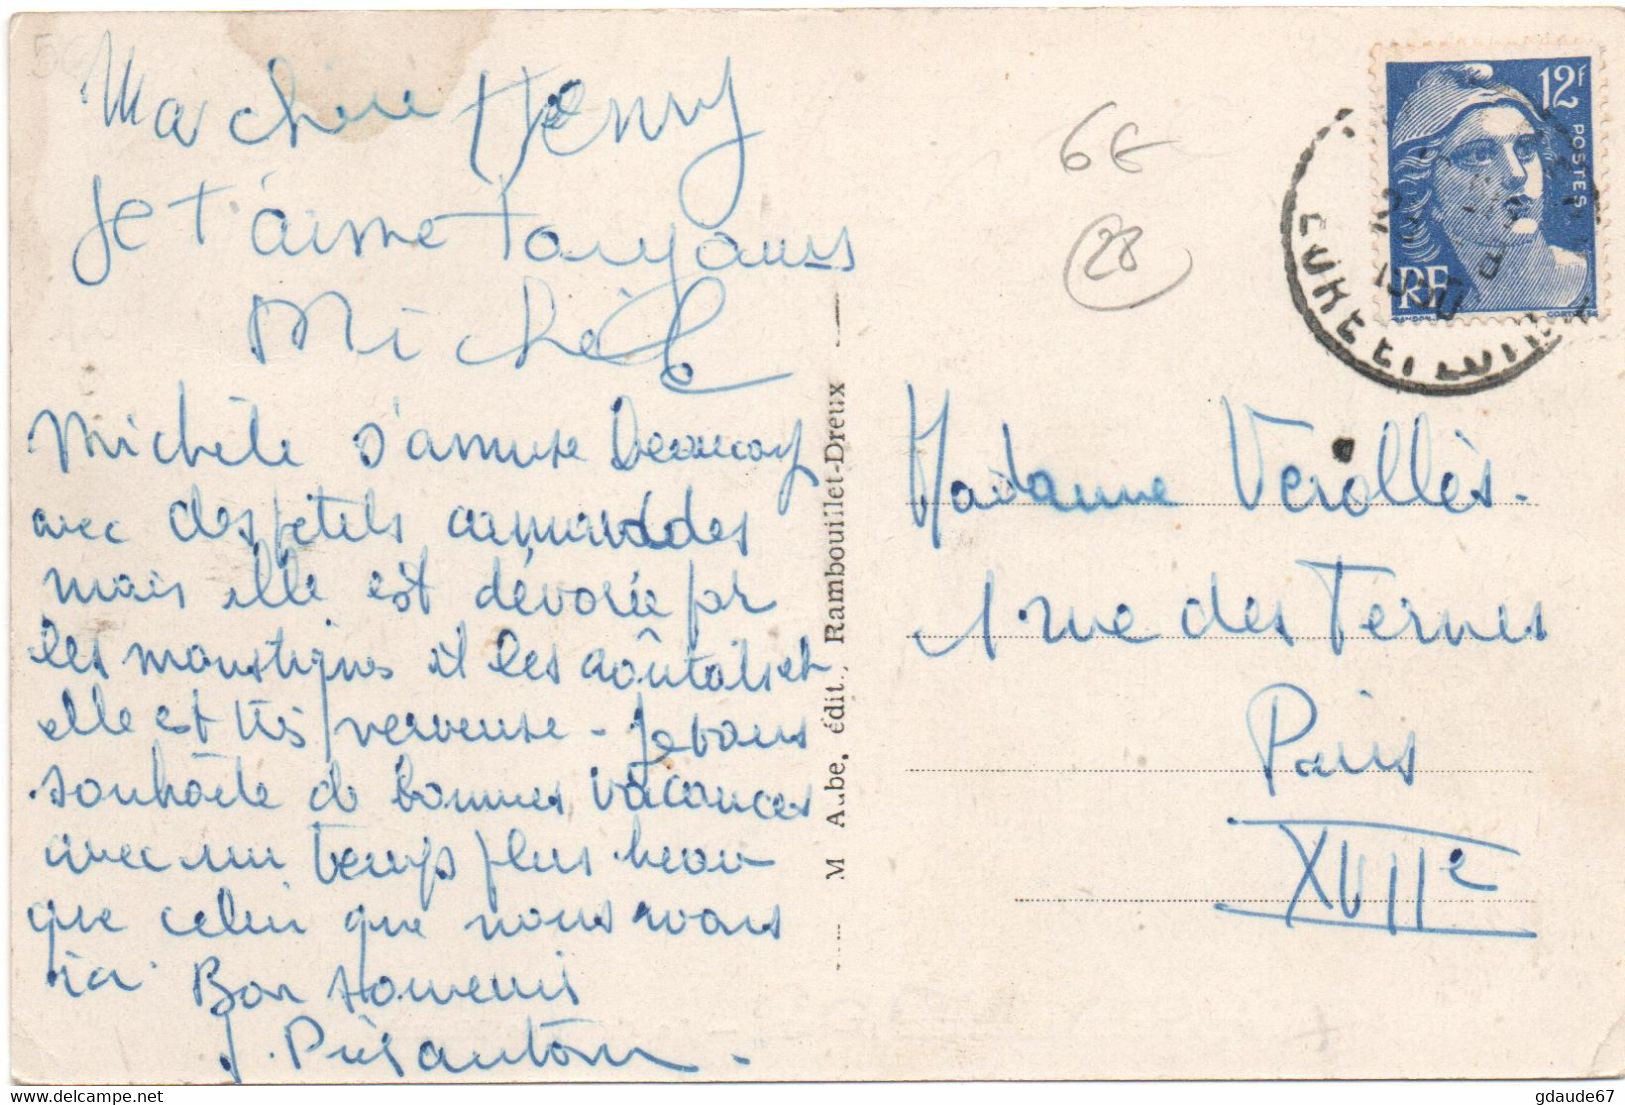 Ma chère Henry
Je t'aime Toujours
Michèle
Michèle s'amuse beaucoup
avec des petits camarades
mais elle est dévorée par
les moustiques et les aoûtats et
elle est très nerveuse - Je vous
souhaite de bonnes vacances
avec un temps plus beau
que celui que nous avons
ici. Bon souvenir
M Aube, édit., Rambouillet-Dreux
6€
28
12F
POSTES
RF
EURE ET LOIR
Madame Verollès.
1 rue des Ternes
Paris
XVIIe
gdaude67